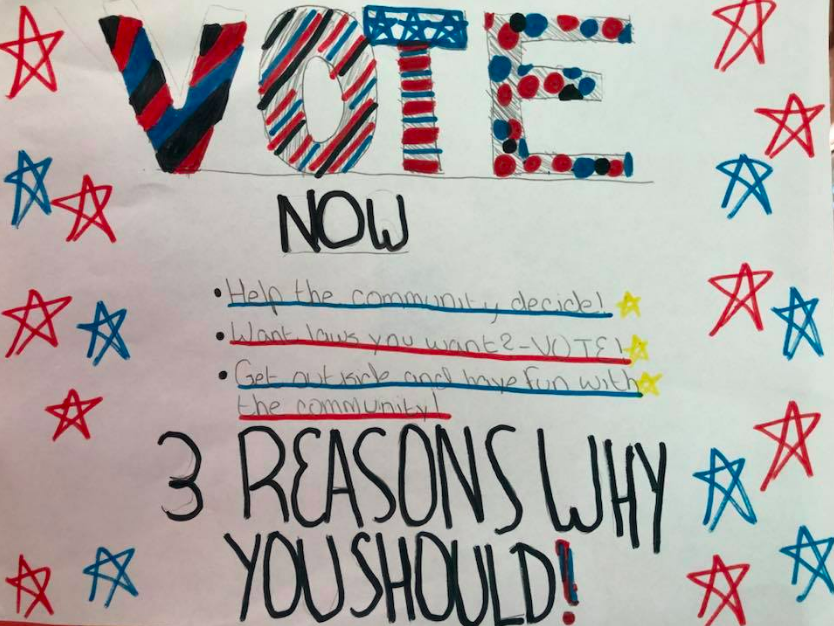 VOTE
NOW
• Help the community decide!
• Want laws you want?-VOTE!
• Get outside and have fun with
the community!
3 REASONS WHY
YOU SHOULD!